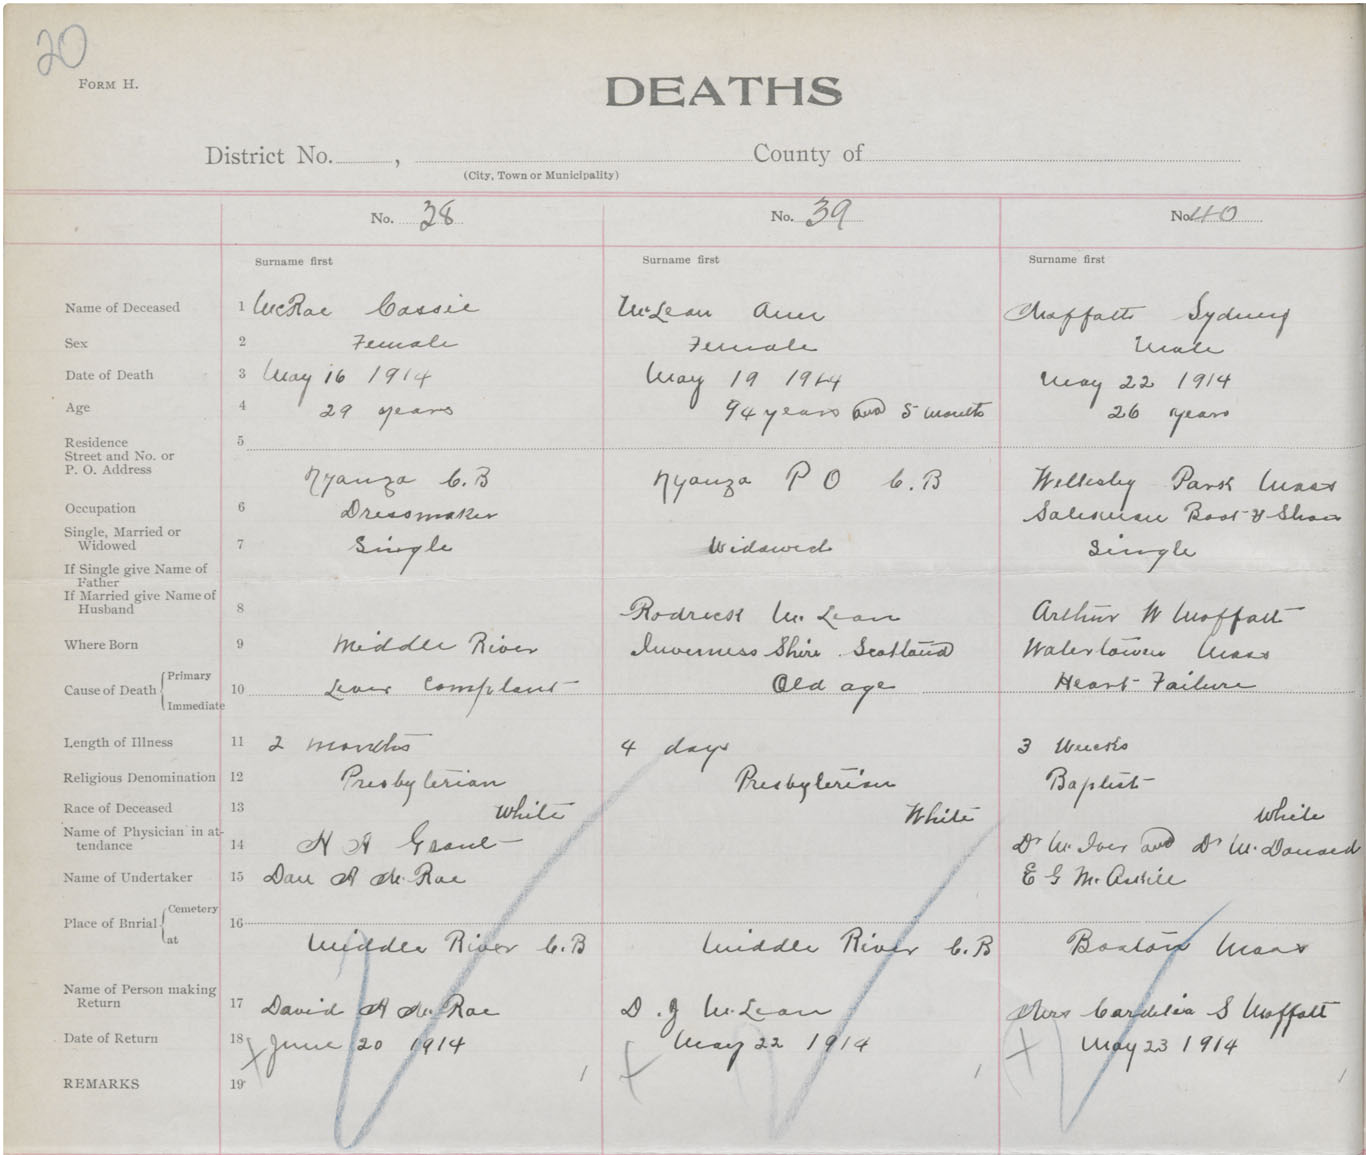 20
Form H.
DEATHS
District No. , County of
(City, Town or Municipality)
No. 38 No. 39 No. 40
Surname first Surname first Surname first
Name of Deceased 1 McRae Cassie McLean Ann Moffatt Sydney
Sex 2 Female Female Male
Date of Death 3 May 16 1914 May 19 1914 May 22 1914
Age 4 29 years 94 years and 5 months 26 years
Residence 5
Street and No. or
P. O. Address Nyanza C.B Nyanza P O C.B Wellesley Park Mass
Occupation 6 Dressmaker Salesman Boot & Shoes
Single, Married or
Widowed 7 Single Widowed Single
If Single give Name of
Father
If Married give Name of
Husband 8 Rodrick McLean Arthur W Moffatt
Where Born 9 Middle River Inverness Shire Scotland Watertown Mass
Cause of Death Primary Immediate 10 Lever Complant Old age Heart Failure
Length of Illness 11 2 months 4 days 3 weeks
Religious Denomination 12 Presbyterian Presbyterian Baptist
Race of Deceased 13 White White White
Name of Physician in at-
tendance 14 H A Grant Dr McIver and Dr McDonald
Name of Undertaker 15 Dan A McRae E G McAskill
Place of Bnrial Cemetery at 16 Middle River C.B Middle River C.B Boston Mass
Name of Person making
Return 17 David A McRae D. J McLean Mrs Cardelia S Moffatt
Date of Return 18 June 20 1914 May 22 1914 May 23 1914
REMARKS 19 1 1 1